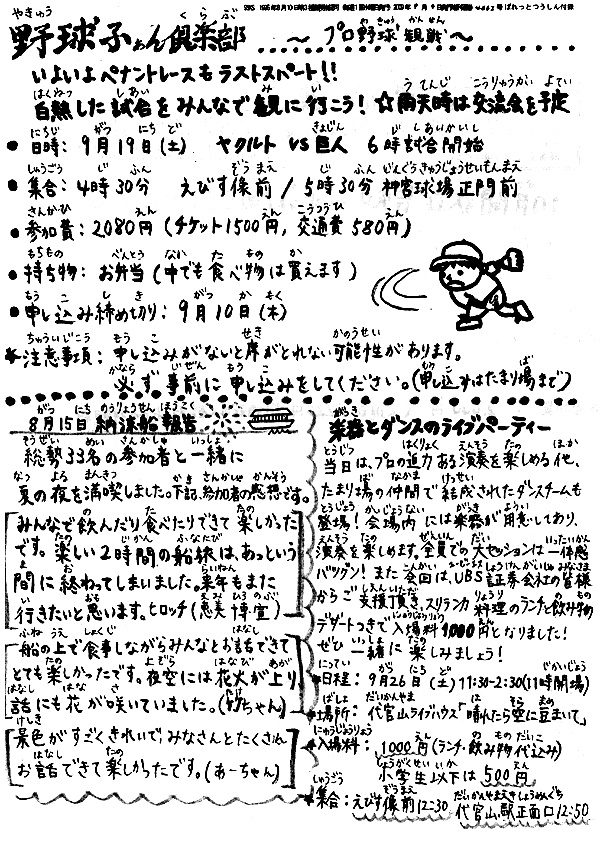 野球ふぁん倶楽部 ……～プロ野球観戦～
いよいよペナントレースもラストスパート!!
白熱した試合をみんなで観に行こう! ☆雨天時は交流会を予定
● 日時: 9月19日(土) ヤクルト VS 巨人 6時試合開始
● 集合: 4時30分 えびす像前 / 5時30分 神宮球場正門前
● 参加費: 2080円 (チケット1500円, 交通費 580円)
● 持ち物: お弁当 (中でも食べ物は買えます)
● 申し込み締め切り: 9月10日(木)
* 注意事項: 申し込みがないと席がとれない可能性があります。
必ず事前に申し込みをしてください。(申し込みはたまり場まで)
8月15日 納涼船報告
総勢33名の参加者と一緒に
夏の夜を満喫しました。下記、参加者の感想です。
みんなで飲んだり食べたりできて楽しかった
です。楽しい2時間の船旅は、あっという
間に終わってしまいました。来年もまた
行きたいと思います。ヒロッチ(恵美 博宣)
船の上で食事しながらみんなとお話できて
とても楽しかったです。夜空には花火が上り
話にも花が咲いていました。
景色がすごくきれいで、みなさんとたくさん
お話できて楽しかったです。(あーちゃん)
楽器とダンスのライブパーティー
当日は、プロの迫力ある演奏を楽しめる他、
たまり場の仲間で結成されたダンスチームも
登場! 会場内には楽器が用意してあり、
演奏を楽しめます。全員での大セッションは一体感
バツグン! また今回は、UBS証券会社の皆様
からご支援頂き、スリランカ料理のランチと飲み物
デザートつきで入場料1000円となりました!
ぜひ一緒に楽しみましょう!
・日程: 9月26日(土) 11:30-2:30(11時開場)
・場所: 代官山ライブハウス「晴れたら空に豆まいて」
・入場料: 1000円(ランチ・飲み物代込み)
小学生以下は500円
・集合: えびす像前12:30 代官山駅正面口12:50